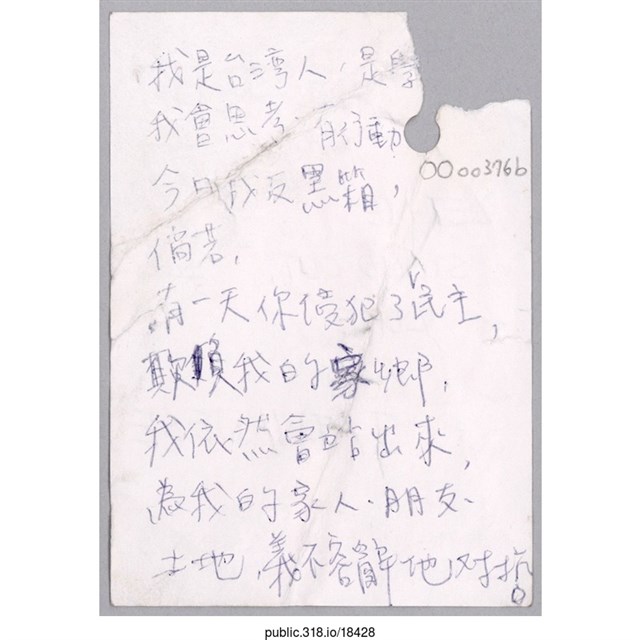 我是台湾人,是學
我會思考、能行動
0000376b
今日我反黑箱,
倘若,
有一天你侵犯了民主,
欺負我的家鄉,
我依然會站出來,
為我的家人、朋友、
土地,義不容辭地对抗
public.318.io/18428